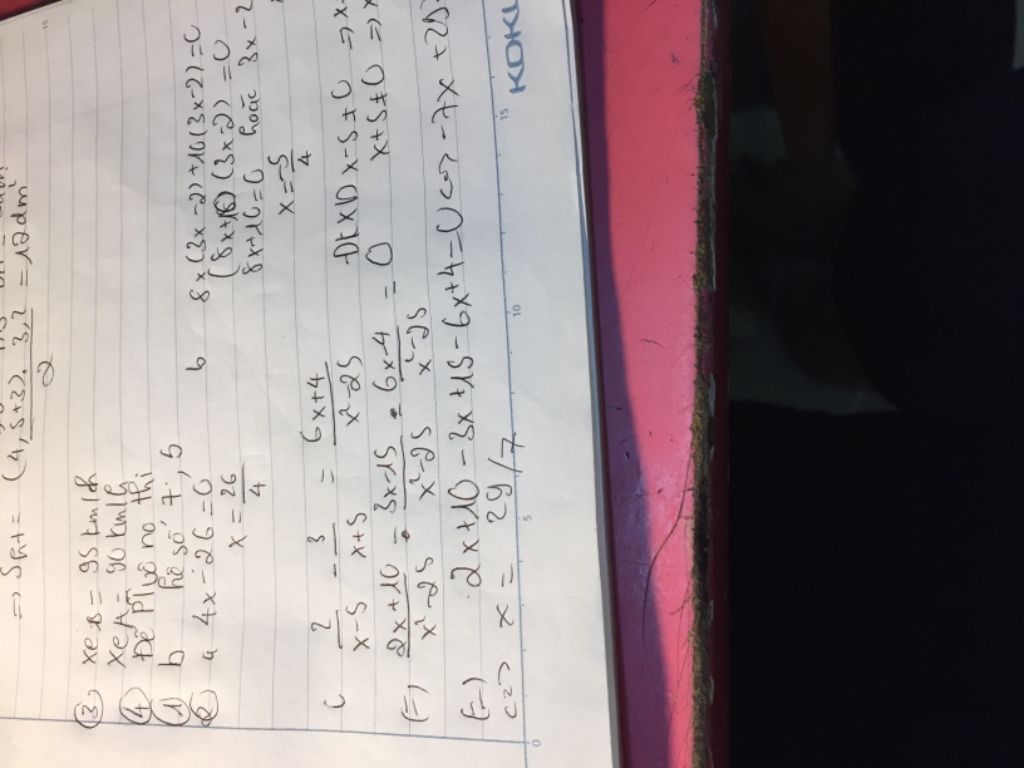 => SH = (4,5+3).3,2 / 2 = 12dm²
③ xe B = 95 km/h
xe A = 90 km/h
④ Để Plvô no thì
① b hệ số 7, 5
② a 4x - 26 = 0
x = 26/4
b 8x(3x-2)+10(3x-2)=0
(8x+10)(3x-2)=0
8x+10=0 hoặc 3x-2
x = -5/4
c 2/x-5 - 3/x+5 = 6x+4/x²-25 ĐKXĐ x-5≠0 => x
(=) 2x+10/x²-25 - 3x-15/x²-25 - 6x-4/x²-25 = 0 x+5≠0 => x
(=) 2x+10-3x+15-6x+4=0 <=> -7x+29
<=> x = 29/7
0 5 10 15
KOKU